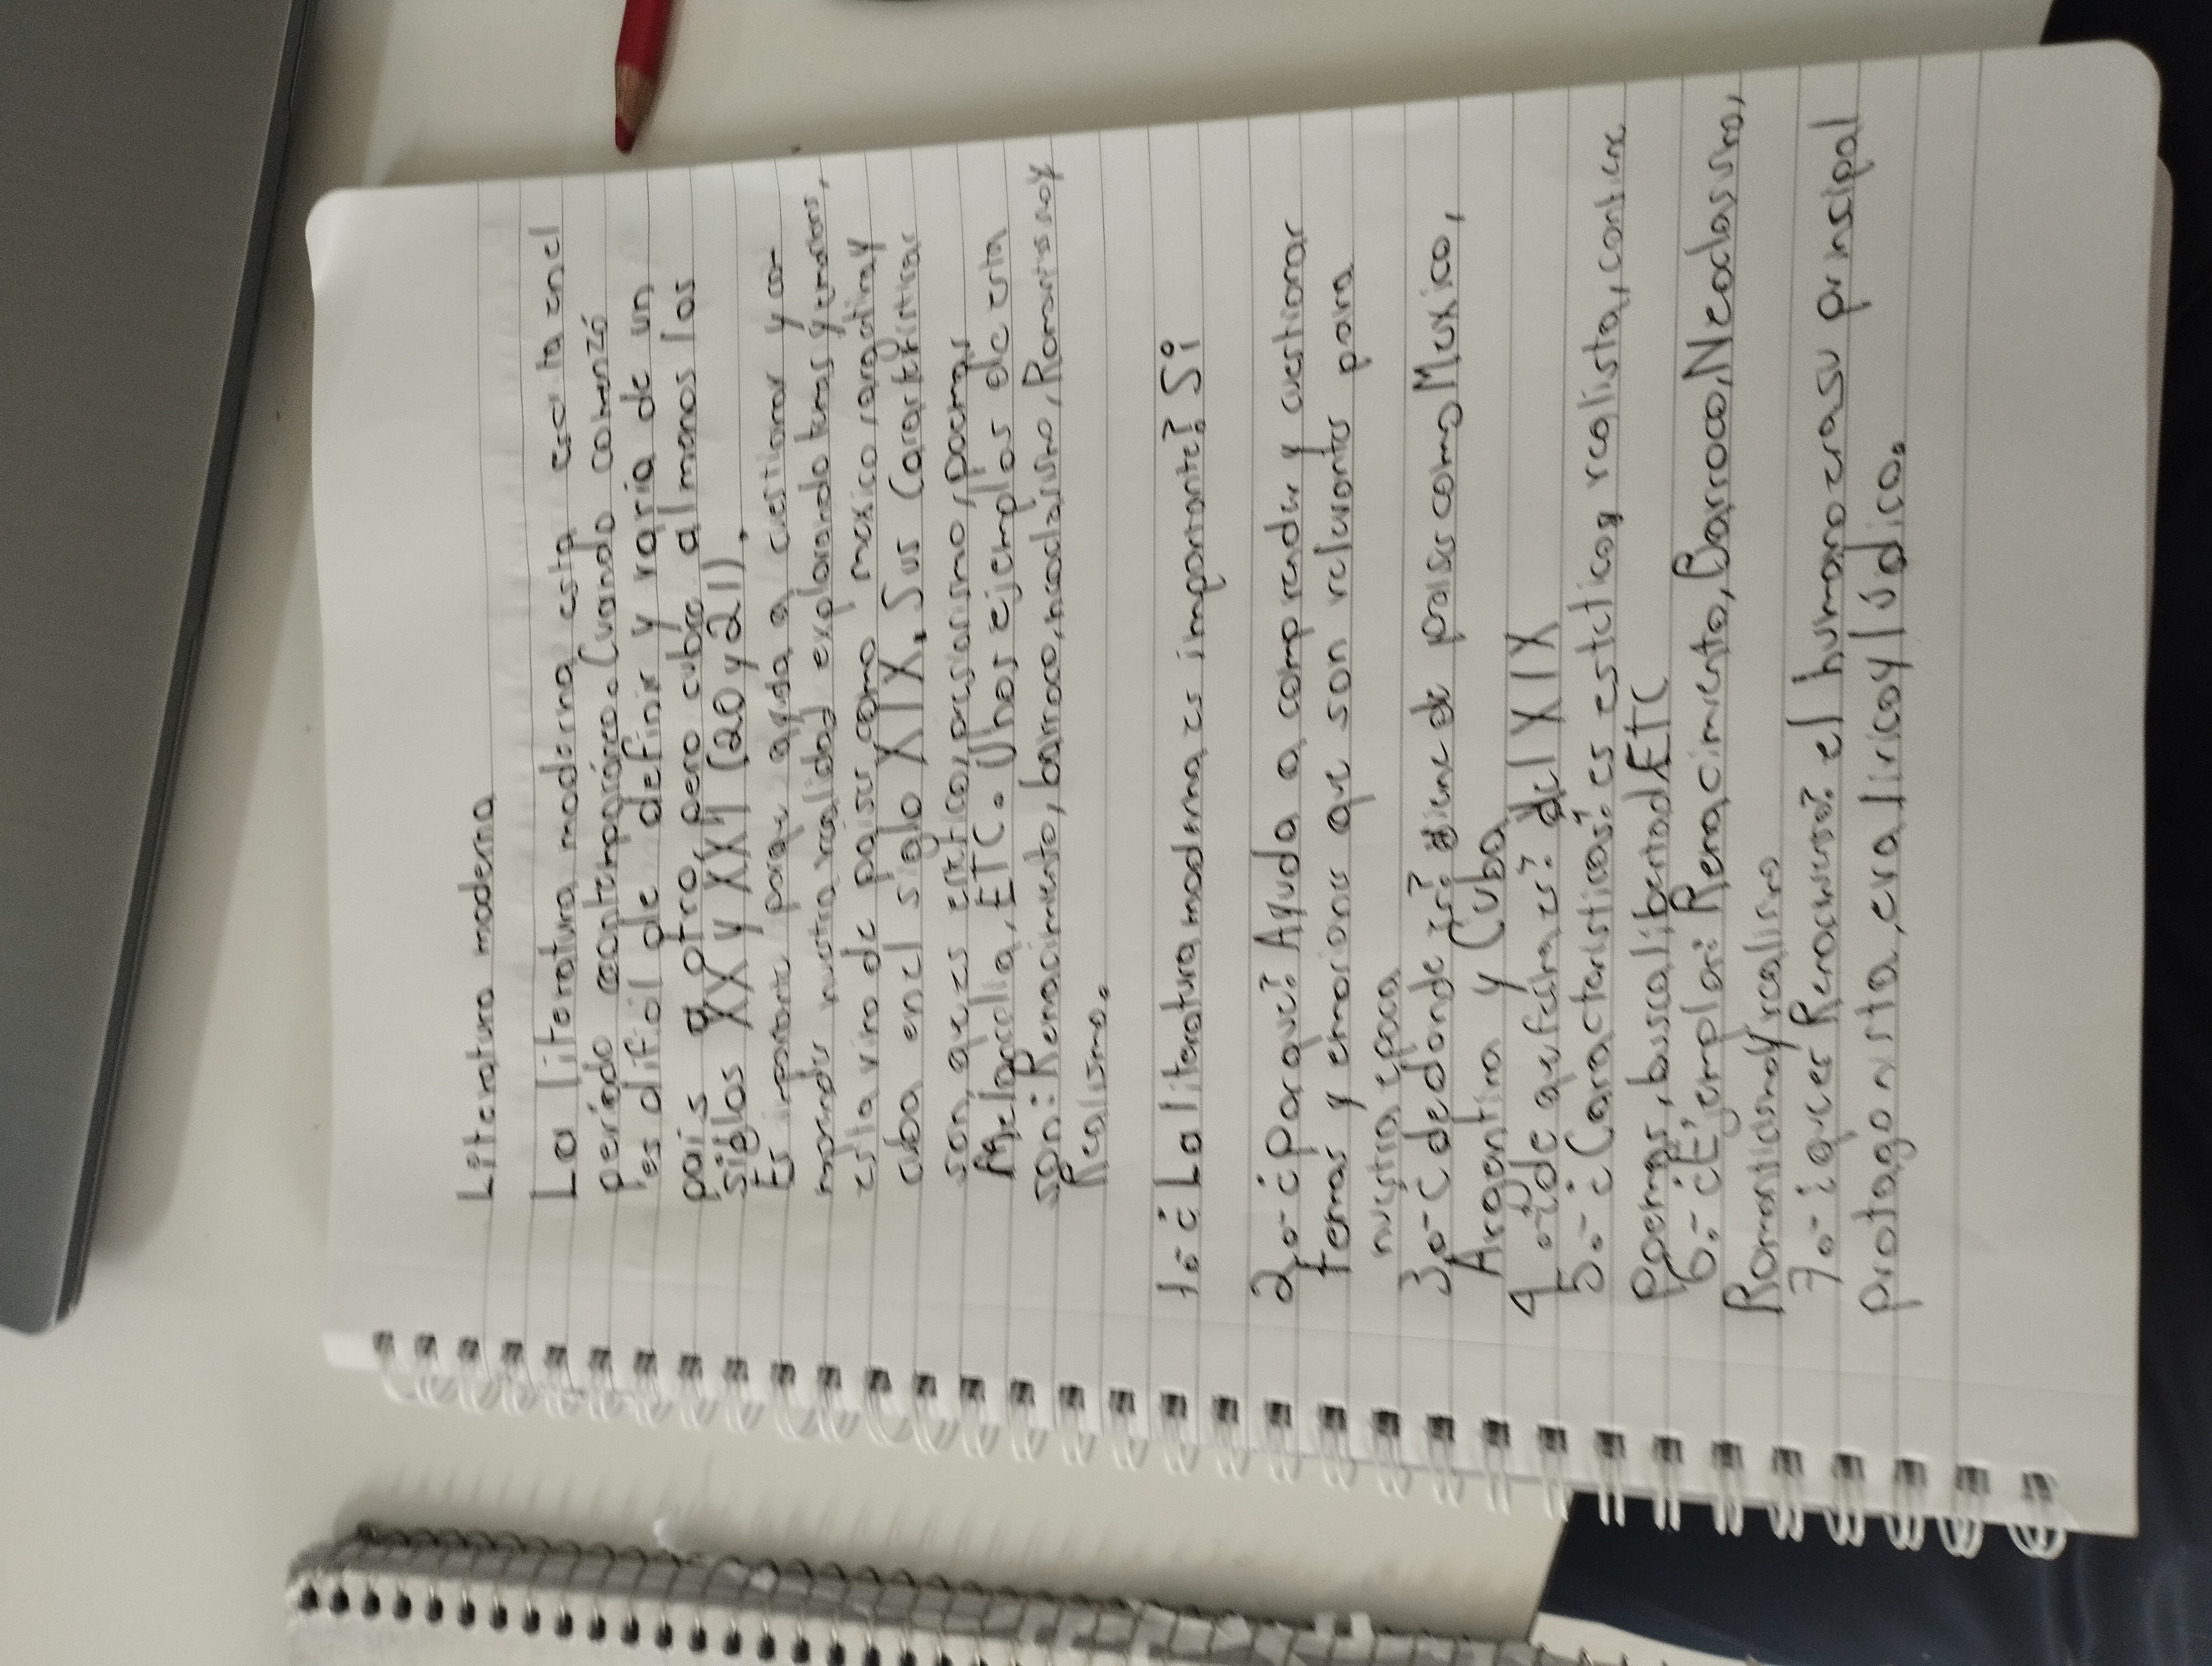 Literatura moderna
La literatura moderna esta escrita en el
periódo contemporáneo. Cuando comenzó
es dificil de definir y varia de un
país a otro, pero cubre al menos los
siglos XX y XXI (20 y 21).
Es importante porque ayuda a cuestionar y co-
nuestra realidad explorando temas y emociones,
esta vino de paises como mexico, argentina y
cuba en el siglo XIX. Sus
son, que es estetico, preciosismo, poemas
Melancolia, ETC. Unos ejemplos de esta
son: Renacimiento, barroco, neoclasismo, Romantisismo y
Realismo.
1.-¿La literatura moderna es importante? Si
2.-¿Para que? Ayuda a comprender y cuestionar
temas y emociones que son relevantes para
nuestra epoca
3.-¿de donde es? viene de paises como Mexico,
Argentina y Cuba
4.-¿de que fecha es? del XIX
5.-¿Caracteristicas? es estetica, realista, contiene
Poemas, busca libertad ETC
6.-¿Ejemplos: Renacimiento, Barroco, Neoclasismo,
Romanticismo y realismo
7.-¿que es Renacimiento? el humano era su principal
protagonista, era lirico y lúdico.